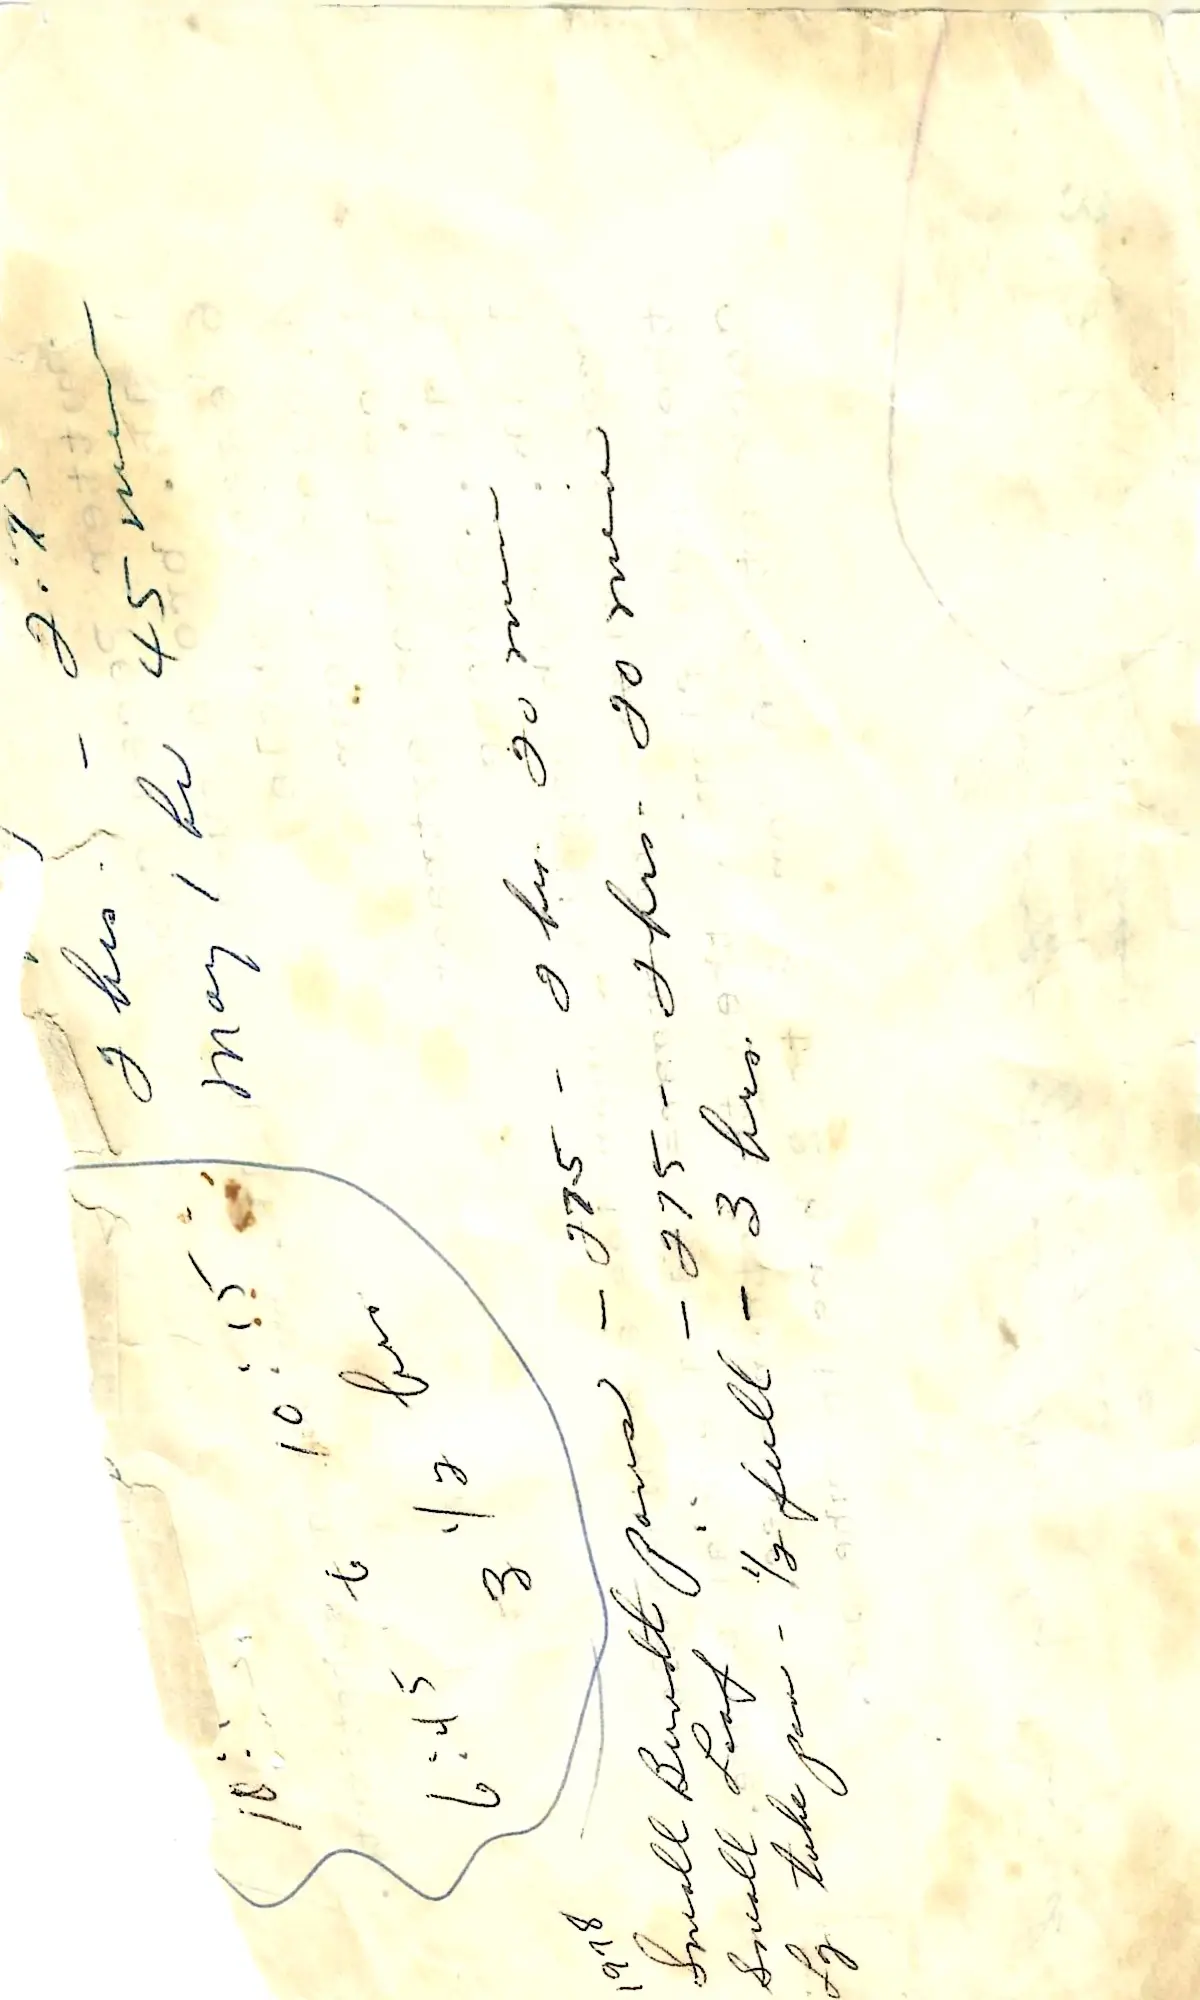 2 hrs. - 275
may 1 hr 45 min
10:15
6:45 to
3 1/2 hrs
1978
Small Bundt pans - 275 - 2 hr. 20 min
Small Loaf " - 275 - 2 hrs - 20 min
Lg tube pan - 1/2 full - 3 hrs.